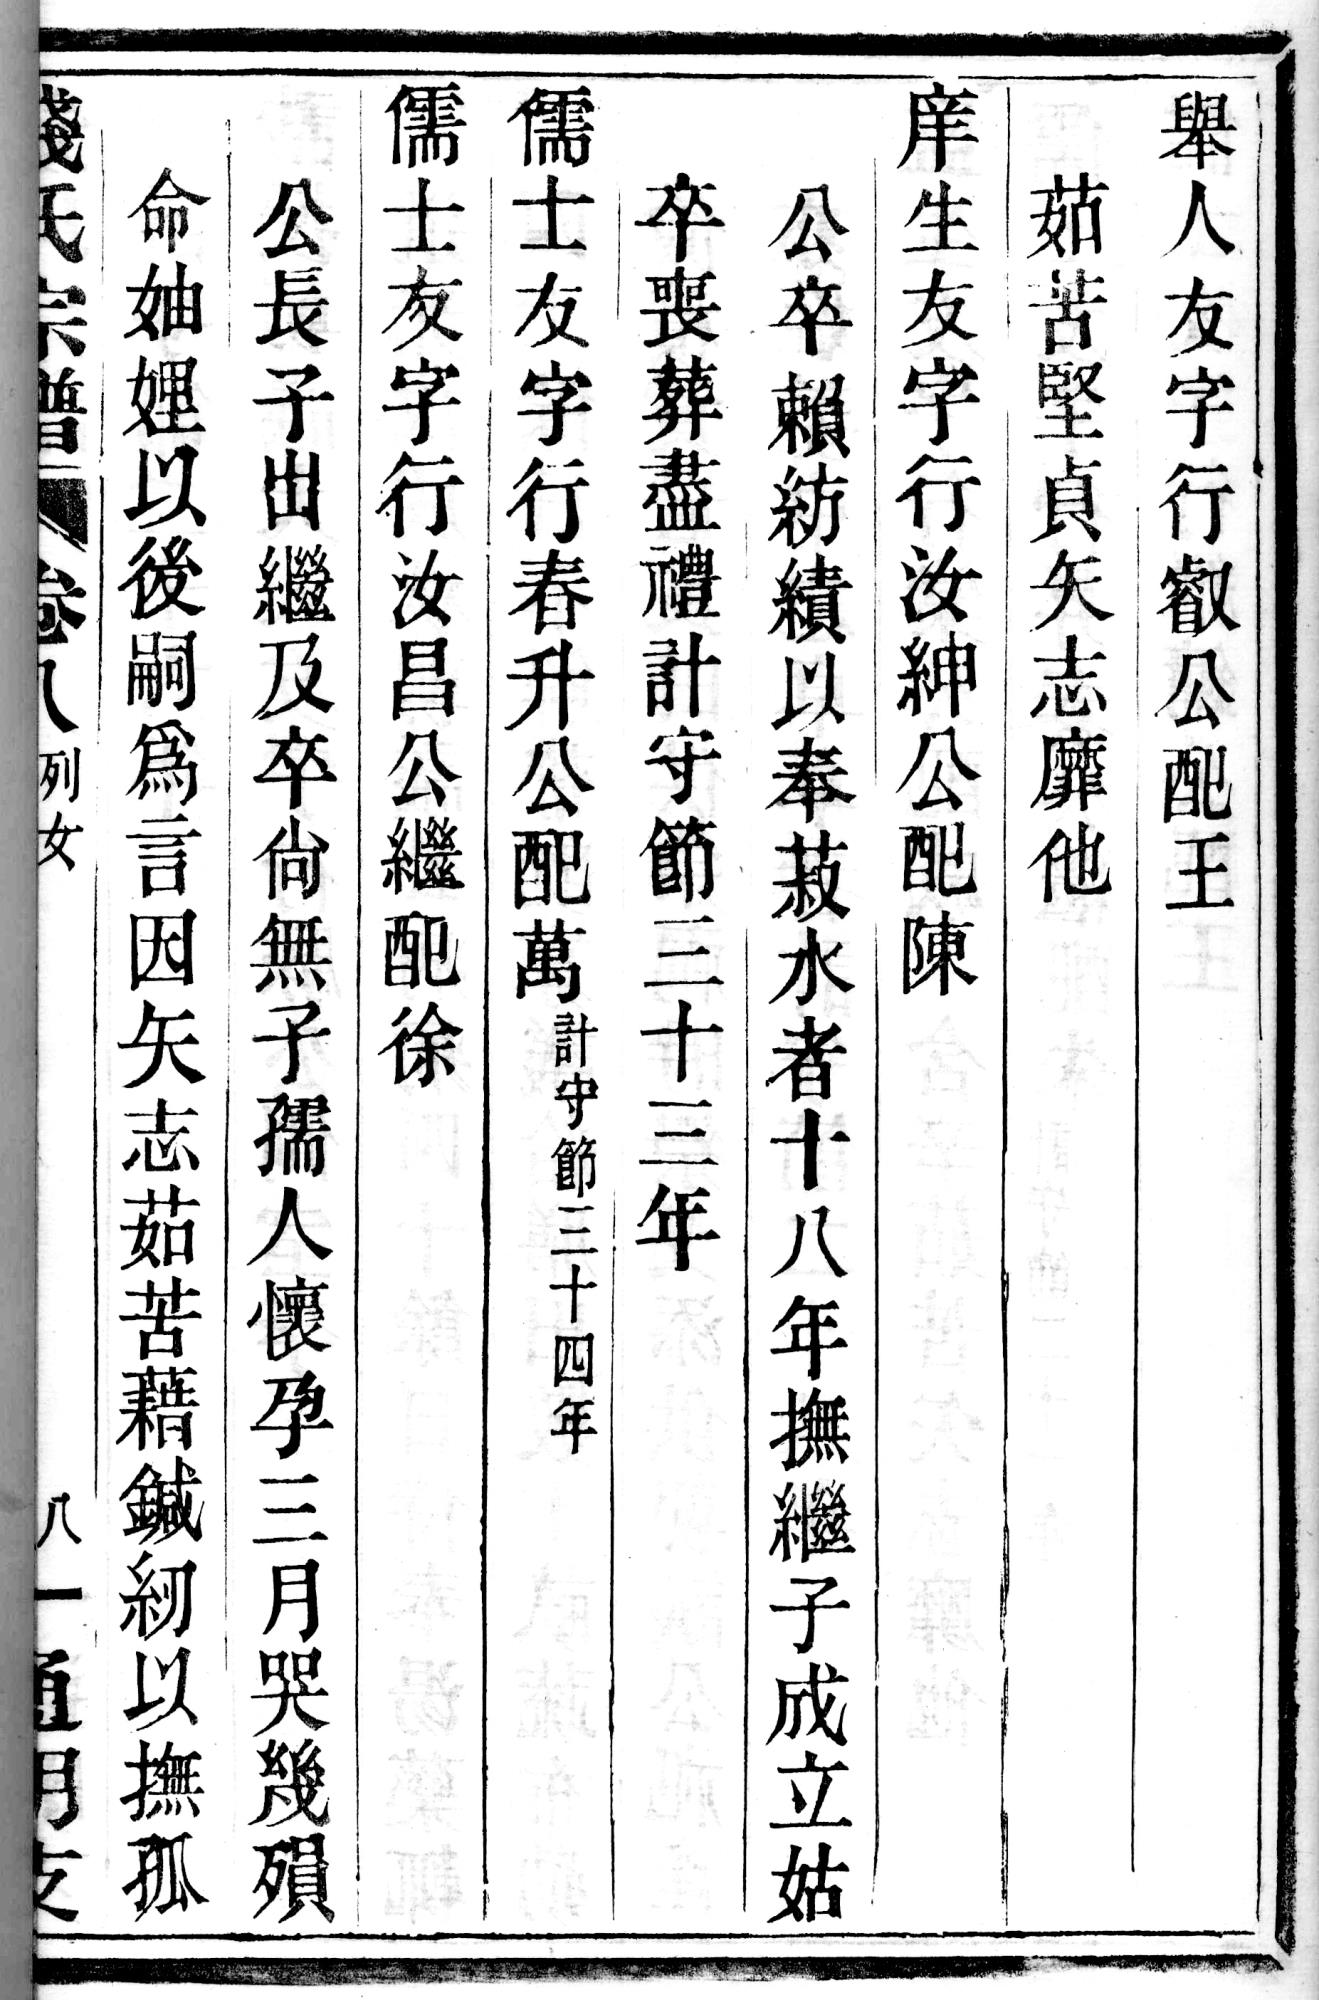 舉人友字行叡公配王
茹苦堅貞矢志靡他
庠生友字行汝紳公配陳
公卒賴紡績以奉菽水者十八年撫繼子成立姑
卒喪葬盡禮計守節三十三年
儒士友字行春升公配萬計守節三十四年
儒士友字行汝昌公繼配徐
公長子出繼及卒尚無子孺人懷孕三月哭幾殞
命妯娌以後嗣爲言因矢志茹苦藉鍼紉以撫孤
錢氏宗譜 卷八 列女 八一 通明支